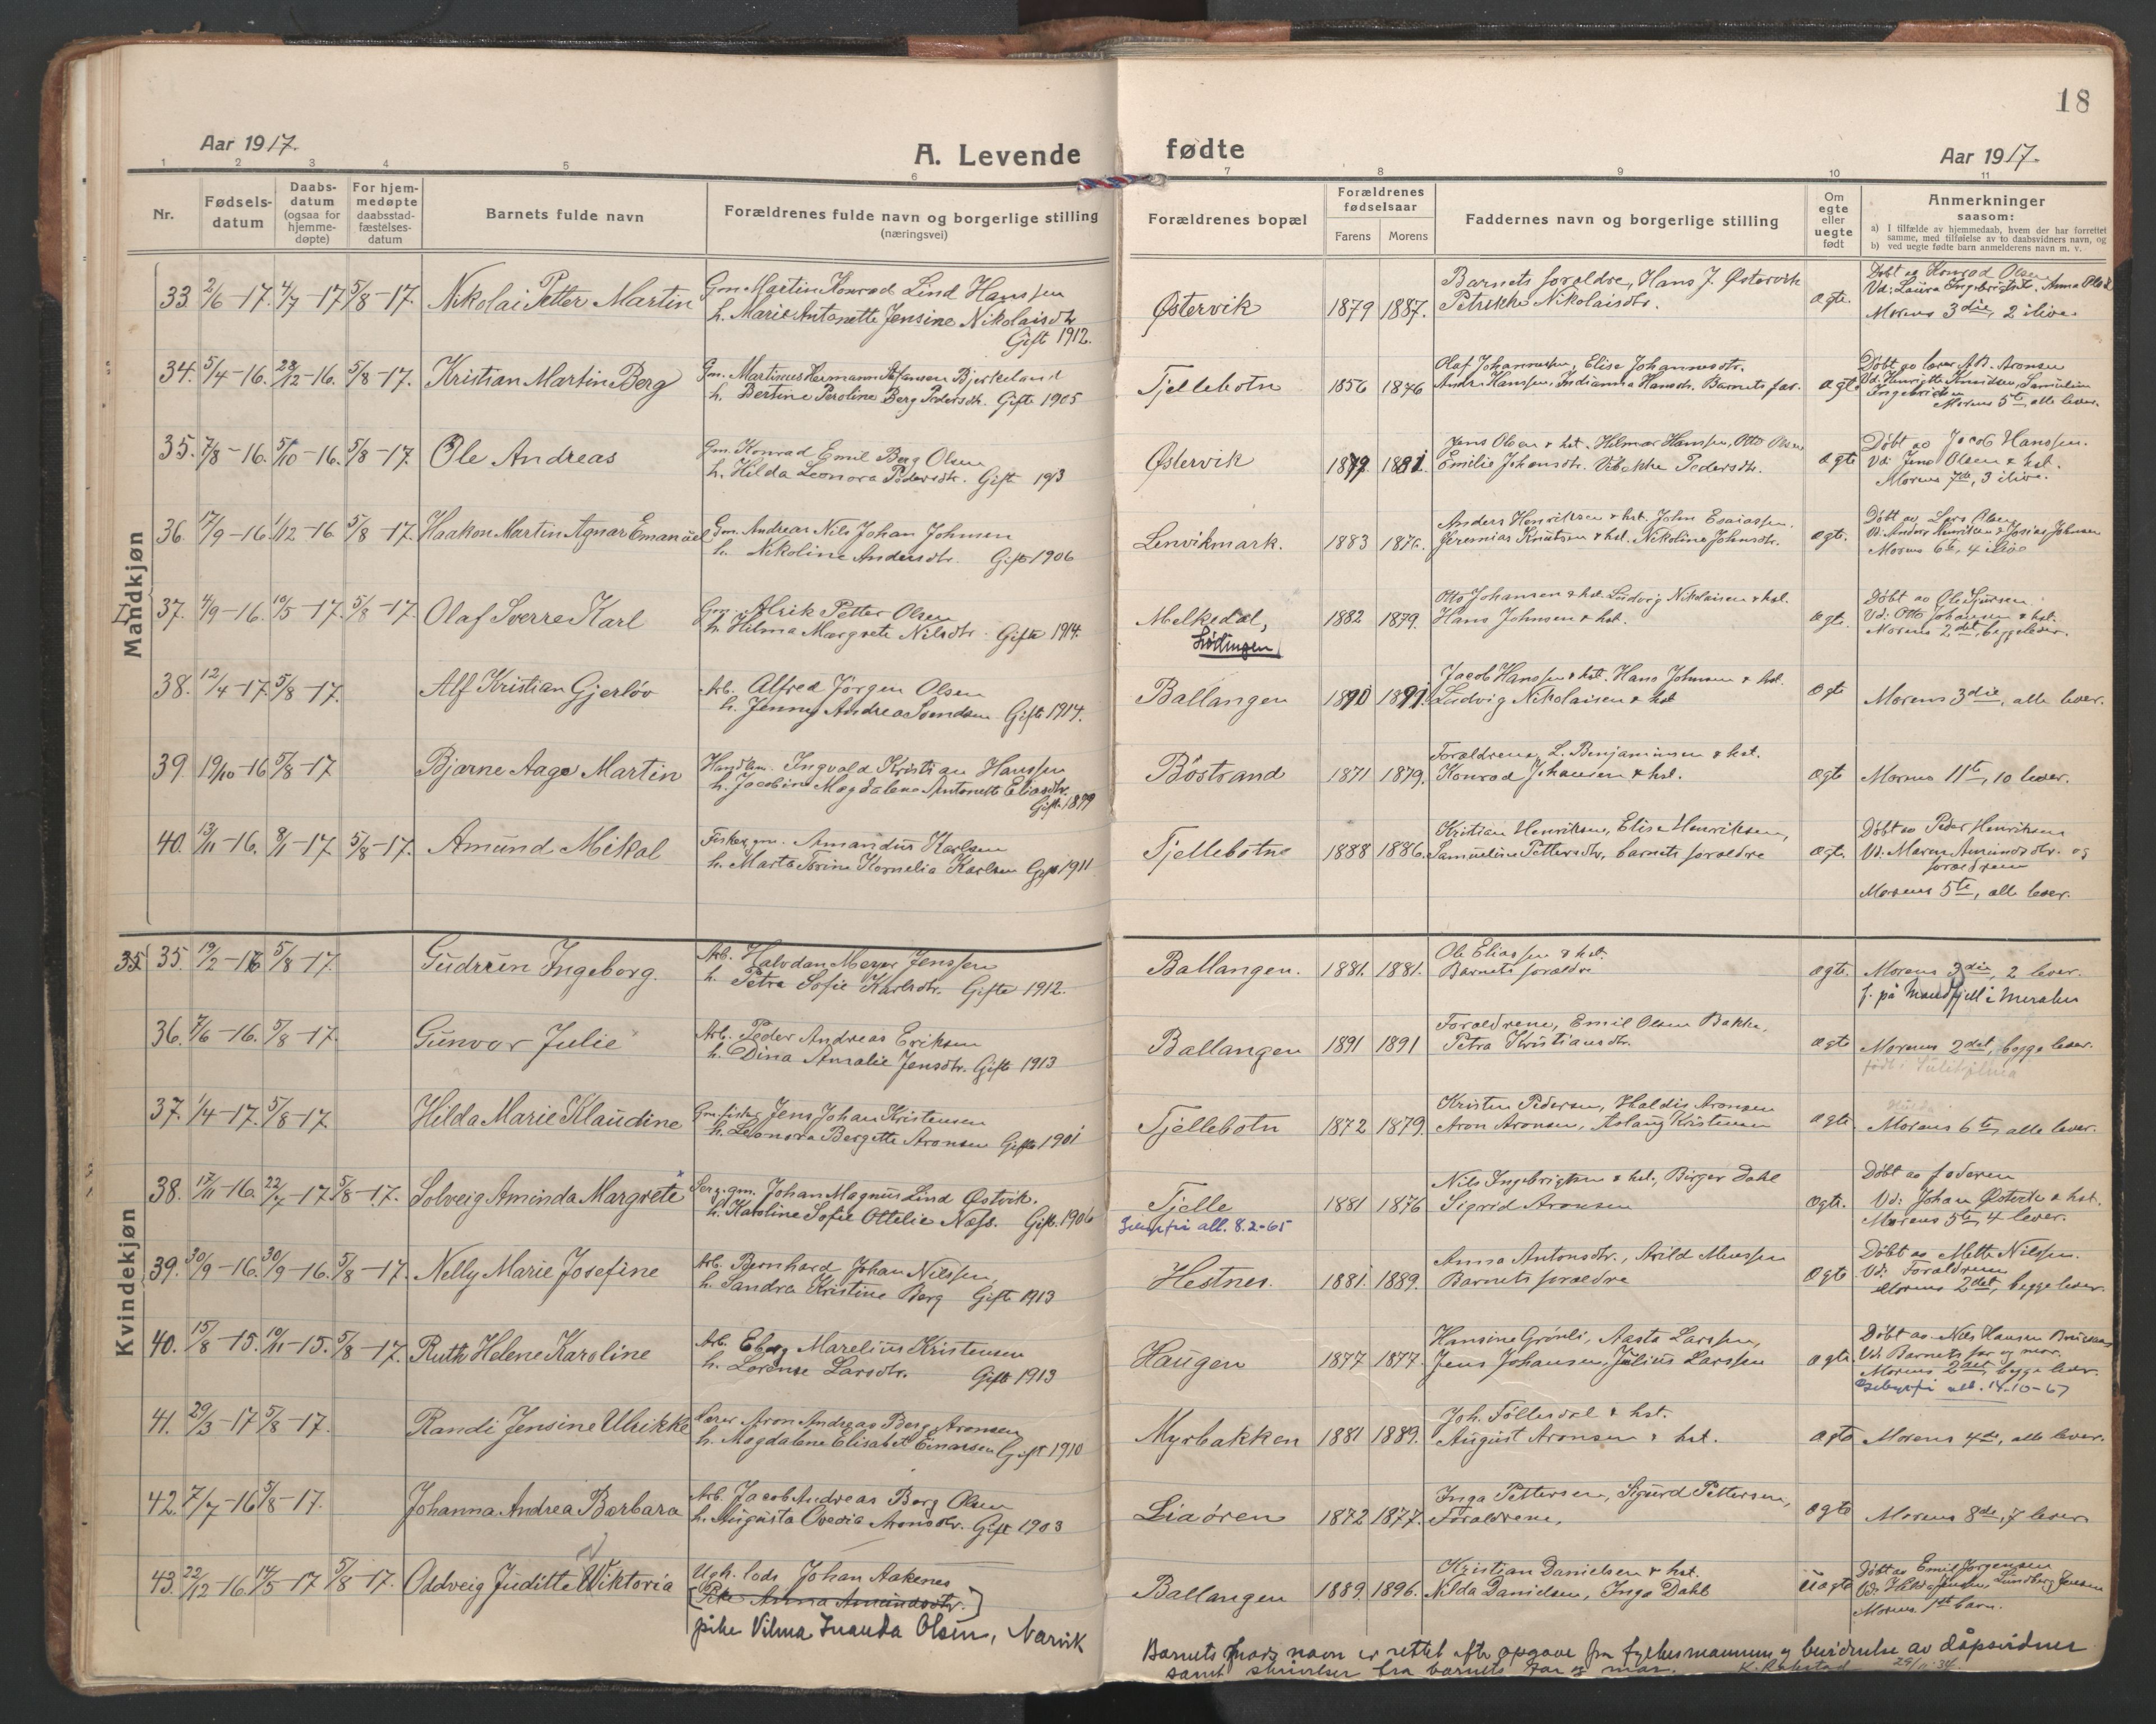 18
Aar 1917.
A. Levende fødte
Aar 1917.
1 2 3 4 5 6 7 8 9 10 11
Nr.
Fødsels-
datum
Daabs-
datum
(ogsaa for
hjemme-
døpte)
For hjem-
medøpte
daabsstad-
fæstelses-
datum
Barnets fulde navn
Forældrenes fulde navn og borgerlige stilling
(næringsvei)
Forældrenes bopæl
Forældrenes
fødselsaar
Farens Morens
Faddernes navn og borgerlige stilling
Om
egte
eller
uegte
født
Anmerkninger
saasom:
a) I tilfælde av hjemmedaab, hvem der har forrettet
samme, med tilføielse av to daabsvidners navn, og
b) ved uegte fødte barn anmelderens navn m. v.
Mandkjøn
33. 2/6-17. 4/7-17 5/8-17. Nikolai Petter Martin
Gm. Martin Konrad Lind Hanssen
h. Marie Antonette Jensine Nikolaisdtr
Gift 1912.
Østervik 1879 1887.
Barnets foraldre, Hans J. Østervik
Petrikke Nikolaisdtr.
ægte.
Døbt av Konrad Olsen
Vd: Laura Ingebrigtsdt. Anna Olsdt
Morens 3die, 2 ilive
34. 5/4-16. 28/12-16. 5/8-17. Kristian Martin Berg
Gm. Martinus Hermann Bjerkeland
h. Bertine Peroline Berg Pedersdtr. Gifte 1905
Tjellebotn 1856 1876
Olaf Johannessen, Elise Johannesdtr.
Andr. Hanssen, Indianna Hansdtr. Barnets far.
ægte
Døbt av lærer A.B. Aronsen
Vd: Henrijtte Knudsen, Samuline
Ingebrigtsen
Morens 5te, alle lever.
35. 7/8-16. 5/10-16. 5/8-17. Ole Andreas
Gm. Konrad Emil Berg Olsen
h. Hilda Leonora Pedersdtr. Gift 1913
Østervik 1879 1881.
Jens Olsen & hst. Helmer Hanssen, Otto Olsen
Emilie Johansdtr. Vibekke Pedersdtr.
ægte
Døbt av Jacob Hanssen.
Vd: Jens Olsen & hst.
Morens 7de, 3 ilive.
36. 17/9-16. 1/12-16 5/8-17. Haakon Martin Agnar Emanuel
Gm. Andreas Nils Johan Johnsen
h. Nikoline Andersdtr. Gift 1906
Lenvikmark. 1883 1876.
Anders Henriksen & hst. John Esaiassen.
Jeremias Knutsen & hst. Nikoline Johnsdtr.
ægte.
Døbt av Lars Olsen
Vd: Anders Henriksen & Josine Johnsen
Morens 6te, 4 ilive
37. 4/9-16. 10/5-17. 5/8-17. Olaf Sverre Karl
Gm. Alrik Petter Olsen
h. Hilma Margrete Nilsdtr. Gifte 1914.
Melkedal,
Lødingen
1882 1879.
Otto Johansen & hst. Ludvig Nikolaisen & hst.
Hans Johnsen & hst.
ægte.
Døbt av Ole Sjursen
Vd: Otto Johansen & hst.
Morens 2det, begge lever.
38. 12/4-17. 5/8-17. Alf Kristian Gjerløv
Arb. Alfred Jørgen Olsen
h. Jenny Andrea Svendsen Gift 1914.
Ballangen 1890 1891.
Jacob Hanssen & hst. Hans Johnsen & hst.
Ludvig Nikolaisen & hst
ægte
Morens 3die, alle lever.
39. 19/10-16 5/8-17 Bjarne Aage Martin
Handlm. Ingvald Kristian Hanssen
h. Jacobine Magdalena Antonette Eliasdtr.
Gift 1899
Bøstrand 1871 1879.
Foraldrene, L. Benjaminsen & hst.
Konrad Johansen & hst.
ægte
Morens 11te, 10 lever.
40. 13/11-16. 8/1-17 5/8-17. Amund Mikal
Fisker, gm. Amandus Karlsen
h. Marta Torine Kornelia Karlsen Gift 1911
Tjellebotn 1888 1886.
Kristian Henriksen, Elise Henriksen,
Samueline Pettersdtr, barnets foraldre
ægte.
Døbt av Peder Henriksen
Vd: Maren Amundsdtr. og
foraldrene
Morens 5te, alle lever.
Kvindekjøn
35 35. 19/2-16 5/8-17. Gudrun Ingeborg.
Arb. Halvdan Meyer Jenssen
h. Petra Sofie Karlsdtr. Gifte 1912.
Ballangen. 1881. 1881.
Ole Eliassen & hst.
Barnets foraldre
ægte.
Morens 3die, 2 lever.
36. 7/6-16. 5/8-17. Gunvor Julie
Arb. Peder Andreas Eriksen
h. Dina Amalie Jensdtr. Gift 1913
Ballangen 1891 1891
Foraldrene, Emil Olsen Bakke,
Petra Kristiansdtr.
ægte
Morens 2det, begge lever.
født i Sulitjelma
37. 1/4-17. 5/8-17. Hilda Marie Klaudine
Gm. fisker Jens Johan Kristensen
h. Leonora Bergette Aronsen Gift 1901
Tjellebotn 1872 1879.
Kristen Pedersen, Haldis Aronsen
Aron Aronsen, Aslaug Kristensen
ægte
Morens 6te, alle lever.
38. 17/11-16. 22/7-17 5/8-17. Solveig Aminda Margrete
Serg. gm. Johan Magnus Lind Østvik.
h. Karoline Sofie Ottelie Næss. Gift. 1906
Tjelle 1881 1876
all. 8.2-65
Nils Ingebrigtsen & hst., Birger Dahl
Sigrid Aronsen
ægte.
Døbt av faderen
Vd: Johan Østvik & hst.
Morens 5te, 4 lever.
39. 30/9-16. 30/9-16. 5/8-17. Nelly Marie Josefine
Arb. Bernhard Johan Nilssen,
h. Sandra Kristine Berg Gift 1913
Hestnes. 1881. 1889.
Anna Antonsdtr., Arild Monssen
Barnets foraldre
ægte
Døbt av Mette Nilssen.
Vd: Foraldrene
Morens 2det, begge lever.
40. 15/8-15. 19/11-15. 5/8-17. Ruth Helene Karoline
Arb. Eberg Marelius Kristensen
h. Lorense Larsdtr. Gift 1913
Haugen 1877 1877.
Hansine Grønli, Aasta Larssen,
Jens Johansen, Julius Larssen
ægte.
Døbt av Nils Hansen
Vd: Barnets far og mor.
Morens 2det, begge lever.
att. 14-10-67
41. 29/3-17 5/8-17. Randi Jensine Ulrikke
Lærer Aron Andreas Berg Aronsen
h. Magdalene Elisabet Einarsen Gift 1910
Myrbakken 1881 1889.
Joh. Føllesdal & hst.
August Aronsen & hst.
ægte
Morens 4de, alle lever.
42. 7/7-16 5/8-17. Johanna Andrea Barbara
Arb. Jacob Andreas Berg Olsen
h. Augusta Ovedia Aronsdtr. Gift 1903
Liaøren 1872 1877.
Inga Pettersen, Sigurd Pettersen,
Foraldrene,
ægte
Morens 8de, 7 lever
43. 22/12-16. 14/5-17 5/8-17. Oddveig Juditte Wiktoria
Ugh. lods Johan Aakenes
[Pike Anna Amundsdtr.]
pike Vilma Juanda Olsen, Narvik
Ballangen 1889. 1896.
Kristian Danielsen & hst.
Nilda Danielsen, Inga Dahl
uægte
Døbt av Emil Jørgensen
Vd: Jensen Lundberg Jensen
Morens 1ste barn.
Barnets mors navn er rettet efter opgave fra fylkesmannen og bevidnelse av dåpsvidner
samt skrivelser fra barnets far og mor. K. Rabstad 29/11-34.